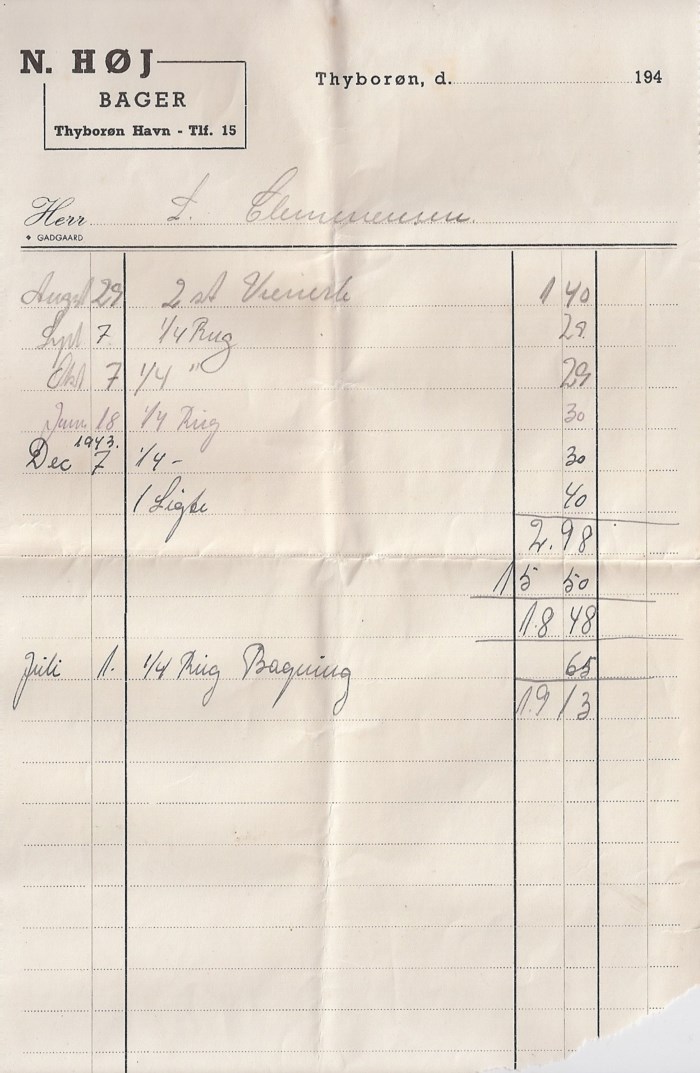 N. HØJ
BAGER
Thyborøn Havn - Tlf. 15
Thyborøn, d. 194
Herr L. Clemmensen.
GADGAARD
Augst 29 2 st 1 40
Sept 7 1/4 Rug 29
Okt 7 1/4 " 29
18 1/4 Rug 30
1943.
Dec 7 1/4 - 30
1 Sigte 40
2.98
15 50
18 48
Juli 1. 1/4 Rug Bagning 65
19 13